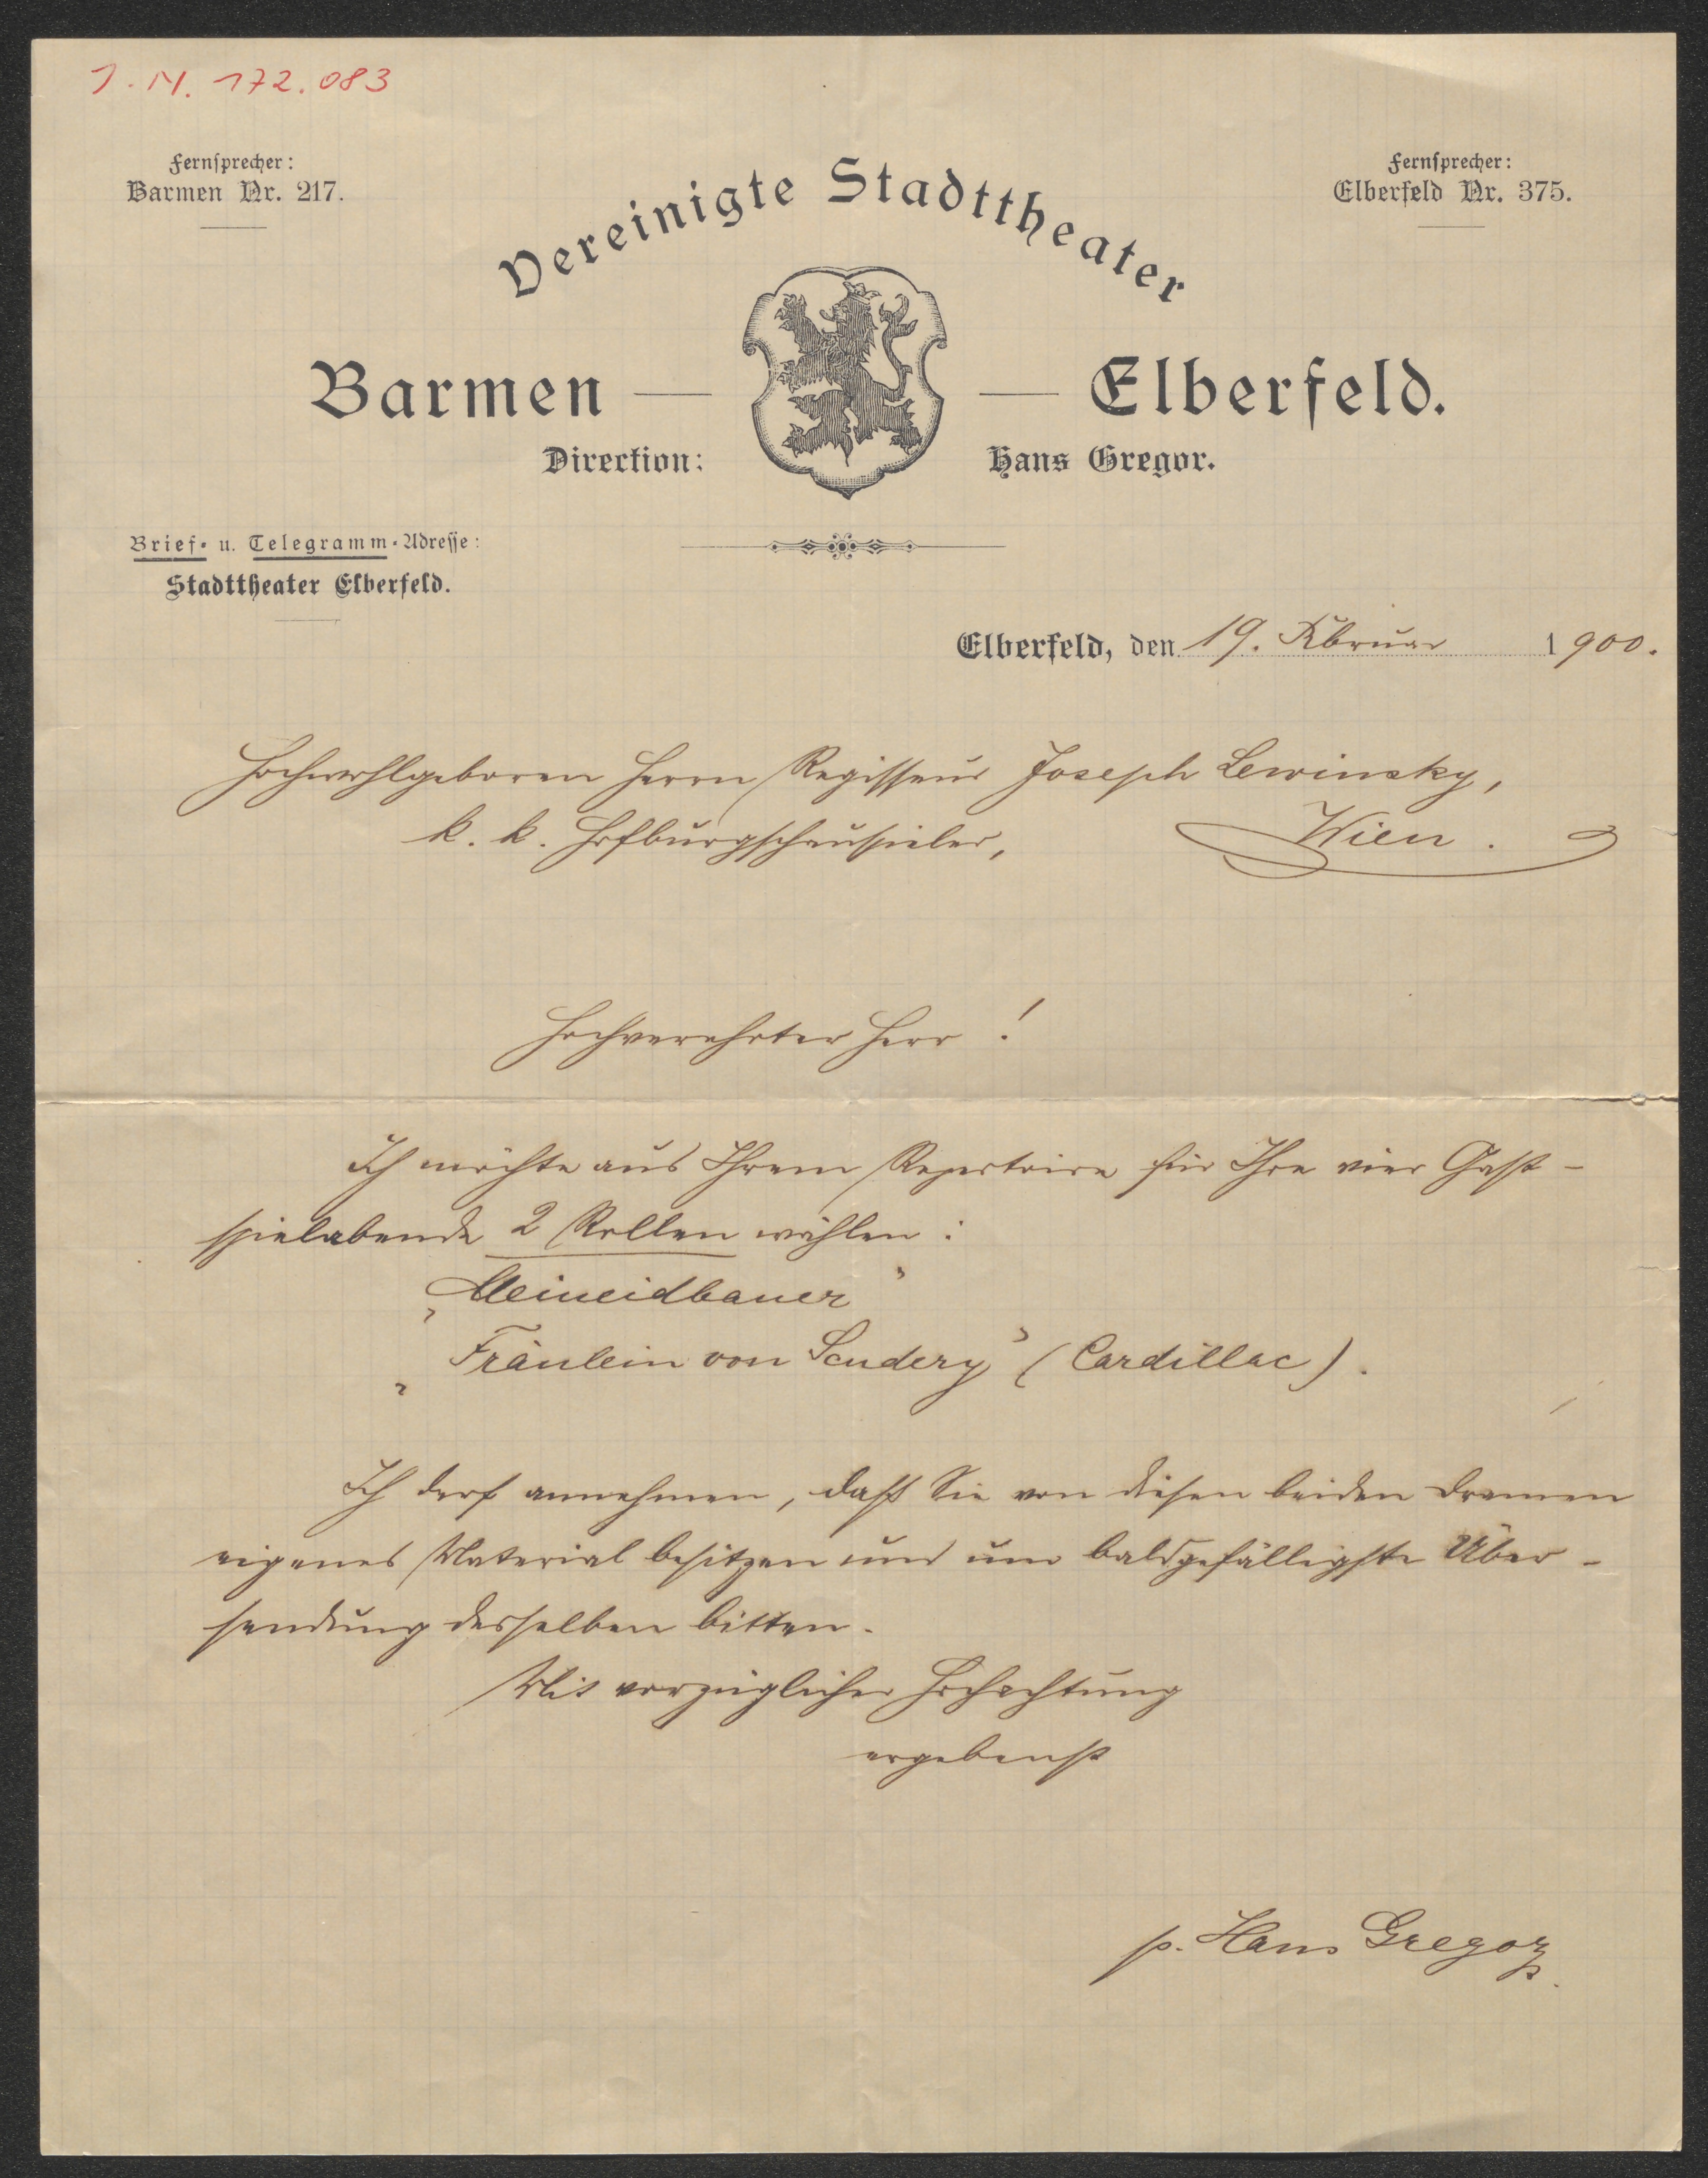 J. N. 172.083
Fernsprecher:
Barmen Nr. 217.
Fernsprecher:
Elberfeld Nr. 375.
Vereinigte Stadttheater
Barmen — — Elberfeld.
Direction: Hans Gregor.
Brief- u. Telegramm-Adresse:
Stadttheater Elberfeld.
Elberfeld, den 19. Februar 1900.
Hochwohlgeboren Herrn Regisseur Joseph Lewinsky,
k. k. Hofburgschauspieler, Wien.
Hochverehrter Herr!
Ich möchte aus Ihrem Repertoire für Ihre vier Gast-
spielabende 2 Rollen wählen:
„Meineidbauer"
„Fräulein von Scudery" (Cardillac).
Ich darf annehmen, daß Sie von diesen beiden Dramen
eigenes Material besitzen und um baldgefälligste Über-
sendung desselben bitten.
Mit vorzüglicher Hochachtung
ergebenst
p. Hans Gregor